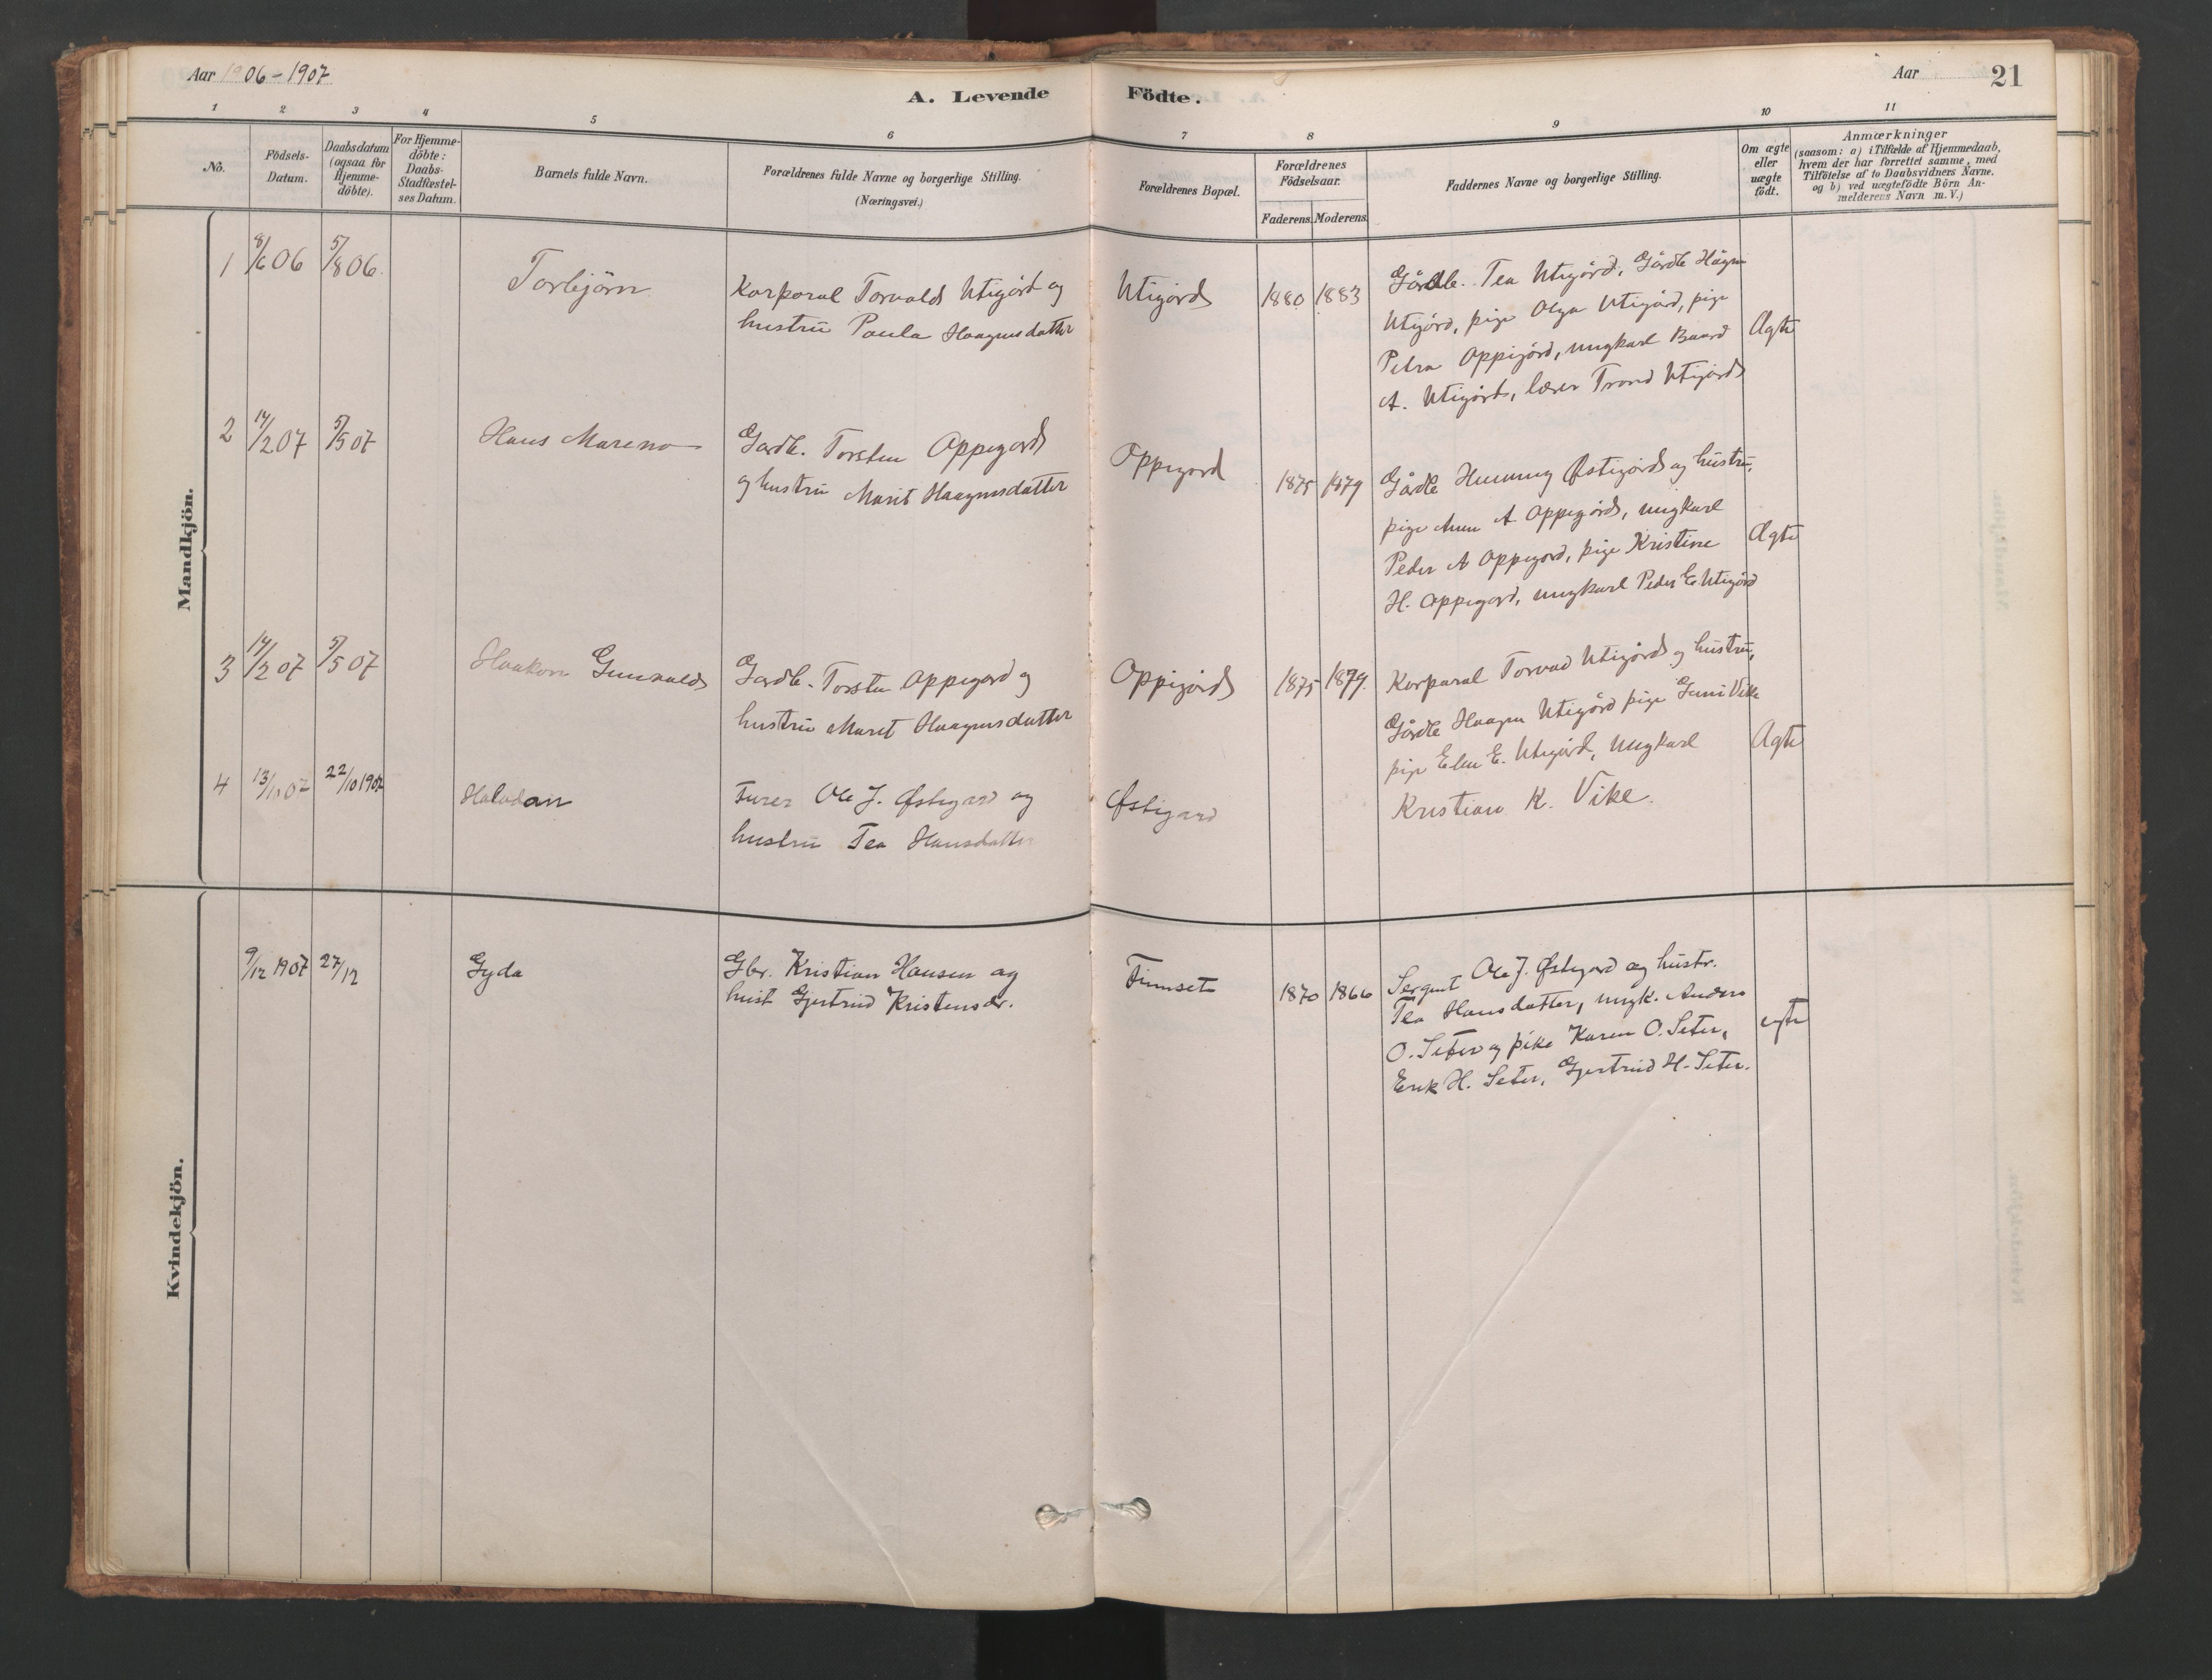 Aar 1906-1907
A. Levende Födte.
Aar 21
1 2 3 4 5 6 7 8 9 10 11
No.
Födsels-
Datum.
Daabsdatum
(ogsaa for
Hjemme-
döbte).
For Hjemme-
döbte:
Daabs-
Stadfæstel-
ses Datum.
Barnets fulde Navn.
Forældrenes fulde Navne og borgerlige Stilling.
(Næringsvei.)
Forældrenes Bopæl.
Forældrenes
Födselsaar.
Faderens. Moderens.
Faddernes Navne og borgerlige Stilling.
Om ægte
eller
uægte
födt.
Anmærkninger
(saasom: a) i Tilfælde af Hjemmedaab,
hvem der har forrettet samme, med
Tilföielse af to Daabsvidners Navne.
og b) ved uægtefödte Börn An-
melderens Navn m.V.)
Mandkjön.
1 8/6 06 5/8 06
Torbjörn
Korporal Torvald Utigård og
hustru Paula Haagensdatter
Utigård
1880 1883
Gårdb. Tea Utigård, Gårdb Hågen
Utigård, pige Olga Utigård, pige
Petra Oppigård, ungkarl Baard
A. Utigård, lærer Trond Utigård
Ægte
2 14/2 07 5/5 07
Hans Mareno
Gardb. Torsten Oppegard
og hustru Marit Haagensdatter
Oppegard
1875 1879
Gårdb Henning Østigård og hustru,
pige A Oppegård, ungkarl
Peder A Oppegård, pige Kristine
H. Oppegard, ungkarl Peder E. Utigård
Ægte
3 14/2 07 5/5 07
Haakon Gunvald
Gardb. Torsten Oppegard og
hustru Marit Haagensdatter
Oppigård
1875 1879.
Korporal Torvald Utigård og hustru,
Gårdb Haagen Utigård pige Guni Vike
pige E. Utigård, Ungkarl
Kristian K. Vike.
Ægte
4 13/10 07 22/10 1907
Halvdan
Furer Ole J. Østigard og
hustru Tea Hansdatter
Østigard
Kvindekjön.
9/12 1907 27/12
Gyda
Gbr. Kristian Hansen og
hust Gjertrud Kristensdr.
Finset
1870 1866
Sergent Ole J. Østigard og hustr.
Tea Hansdatter, ungk. Anders
O. Seter og pike Karen O. Seter,
Erik H. Seter, Gjertrud H. Seter.
egte